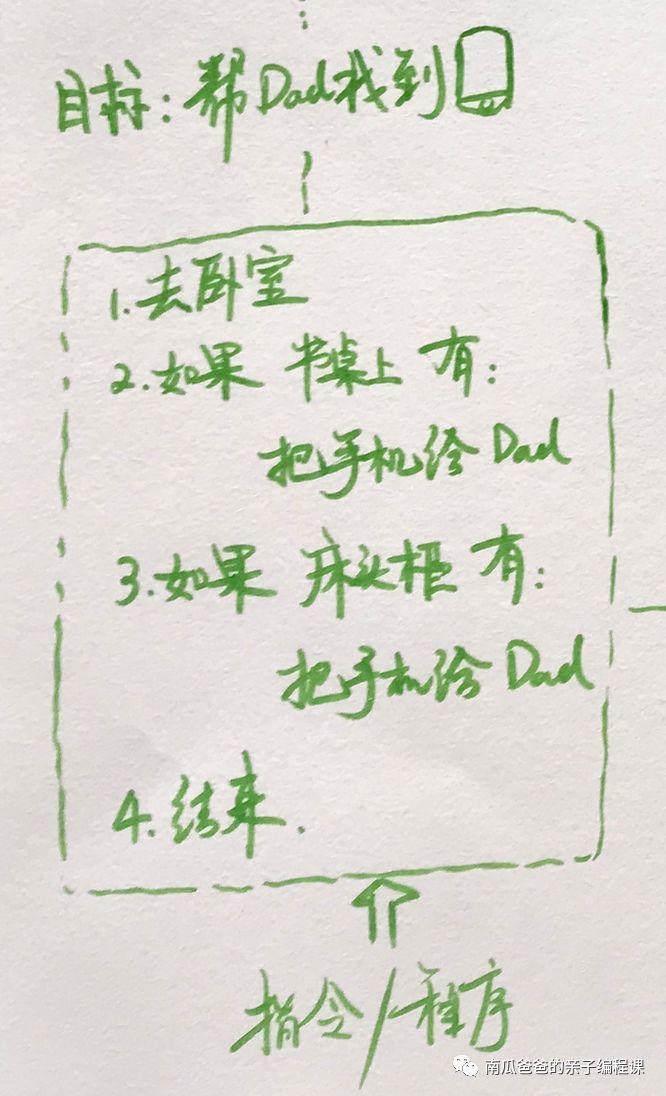 目标:帮Dad找到
1.去卧室
2.如果 书桌上 有:
把手机给Dad
3.如果 床头柜 有:
把手机给Dad
4.结束.
指令/程序
南瓜爸爸的亲子编程课